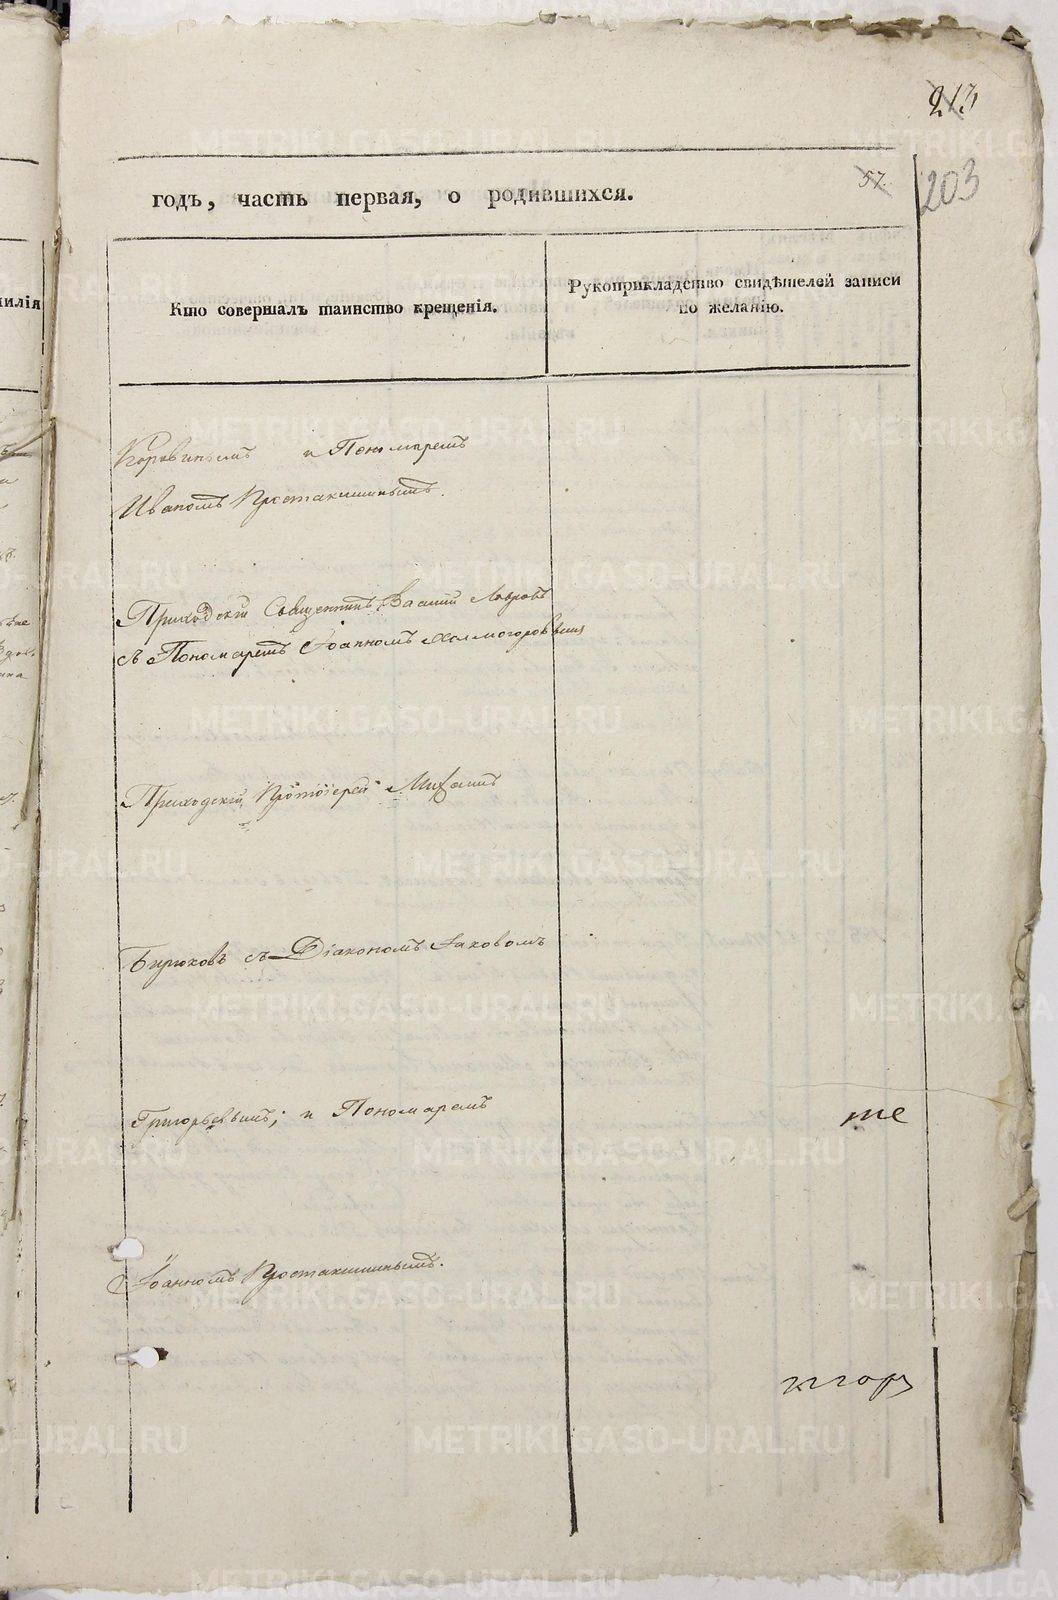 213
57.
203
годъ, часть первая, о родившихся.
илія
Кто совершалъ таинство крещенія.
Рукоприкладство свидѣтелей записи
по желанію.
Коровинымъ и Пономаремъ
Иваномъ Простакишинымъ.
Приходскій Священникъ Василій Лавровъ
съ Пономаремъ Іоанномъ Холмогоровымъ
Приходскій Протоіерей Михаилъ
Бирюковъ съ Діакономъ Іаковомъ
Григорьевымъ; и Пономаремъ
те
Іоанномъ Простакишинымъ.
METRIKI.GASO-URAL.RU